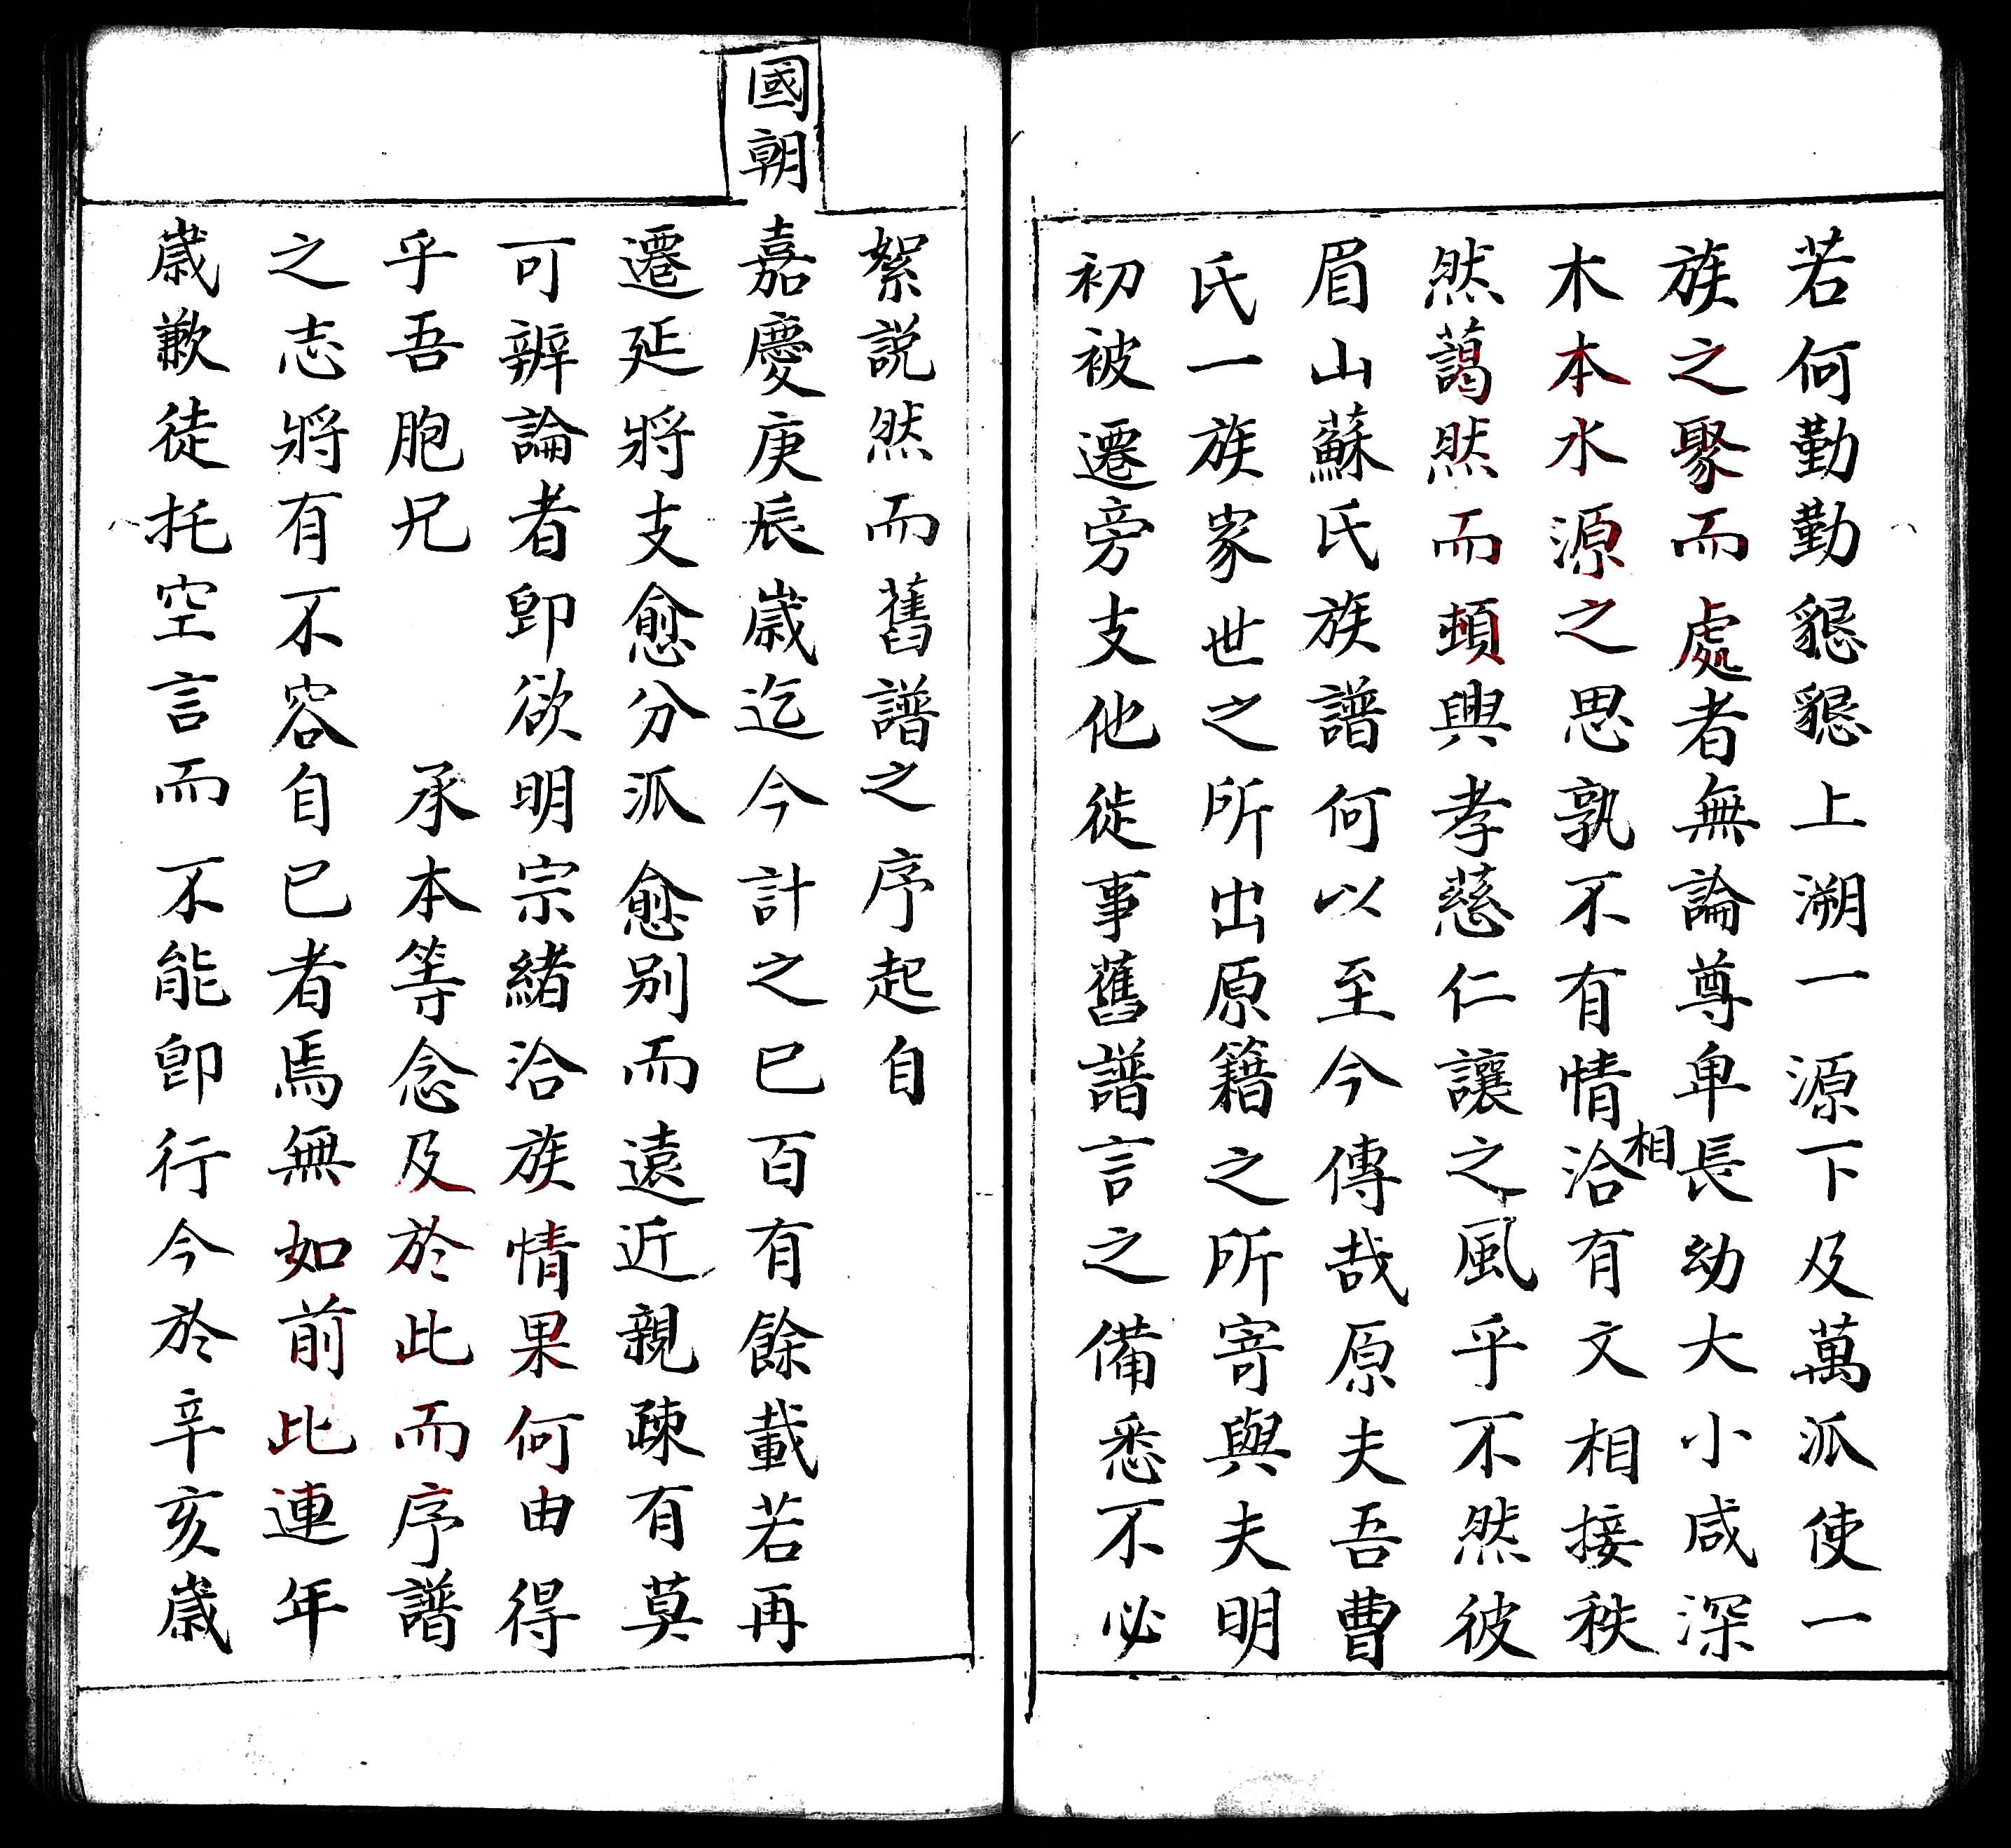 若何勤勤懇懇上溯一源下及萬派使一
族之聚而處者無論尊卑長幼大小咸深
木本水源之思孰不有情相洽有文相接秩
然藹然而頓興孝慈仁讓之風乎不然彼
眉山蘇氏族譜何以至今傳哉原夫吾曹
氏一族家世之所出原籍之所寄與夫明
初被遷旁支他徙事舊譜言之備悉不必
絮說然而舊譜之序起自
國朝
嘉慶庚辰歲迄今計之已百有餘載若再
遷延將支愈分派愈別而遠近親疎有莫
可辨論者卽欲明宗緒洽族情果何由得
乎吾胞兄 承本等念及於此而序譜
之志將有不容自已者焉無如前此連年
歲歉徒托空言而不能卽行今於辛亥歲